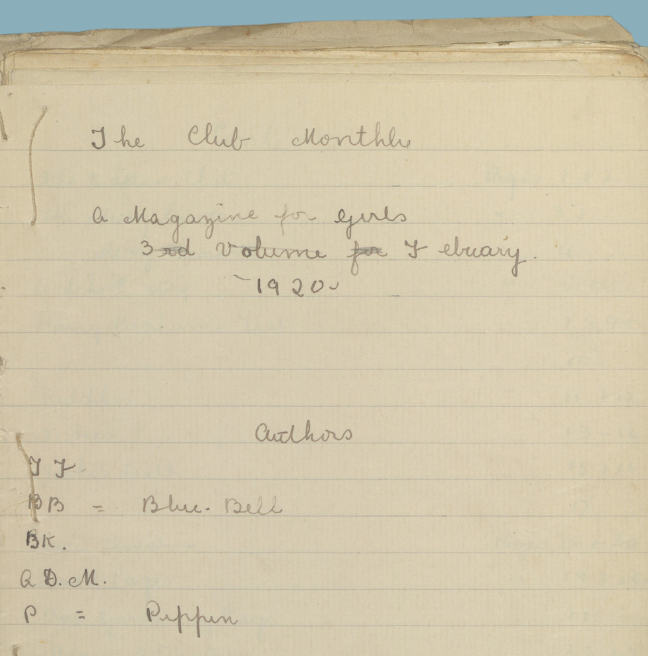 The Club Monthly
A Magazine for Girls
3rd Volume for Febuary.
1920
Authors
BB = Blue-Bell
BK.
Q D. M.
P = Peppen